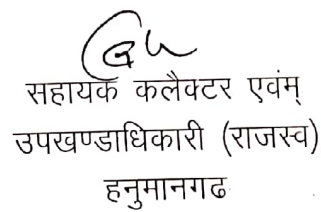 सहायक कलैक्टर एवंम्
उपखण्डाधिकारी (राजस्व)
हनुमानगढ